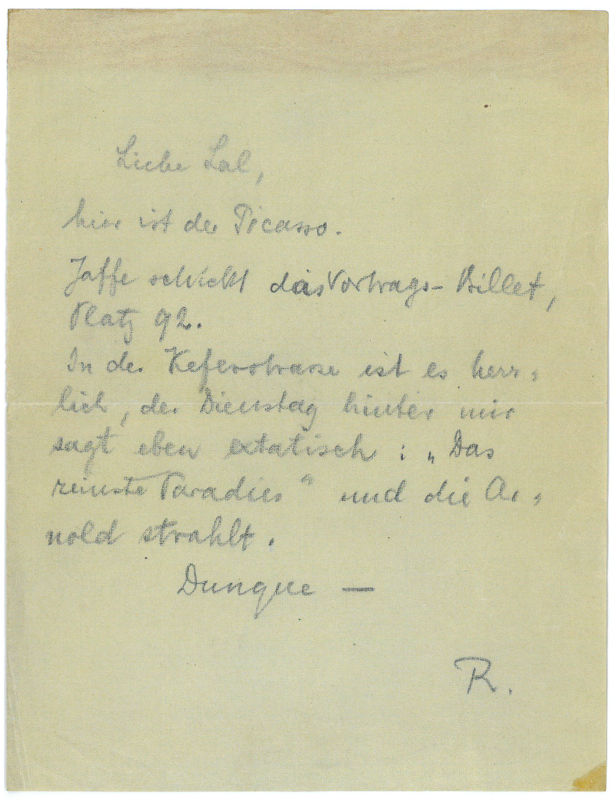 Liebe Lal,
hier ist der Picasso.
Jaffe schickt das Vortrags-Billet,
Platz 92.
In der Keferstrasse ist es herr-
lich, der Dienstag hinter mir
sagt eben extatisch: „Das
reinste Paradies“ und die Ar-
nold strahlt.
Dunque —
R.